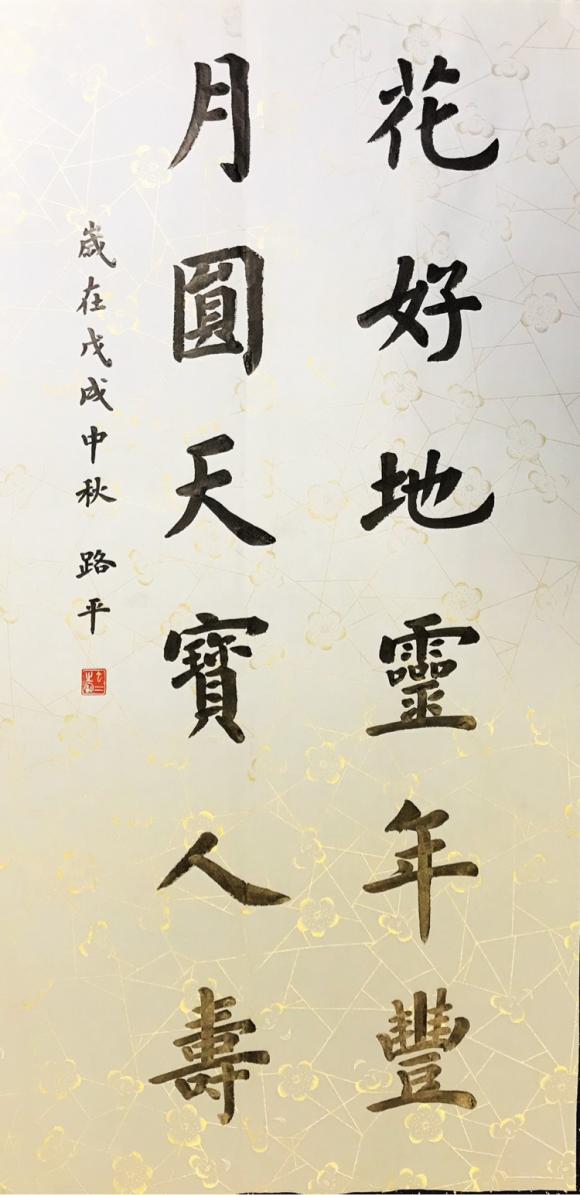 花好地靈年豐
月圓天寶人壽
歲在戊戌中秋 路平